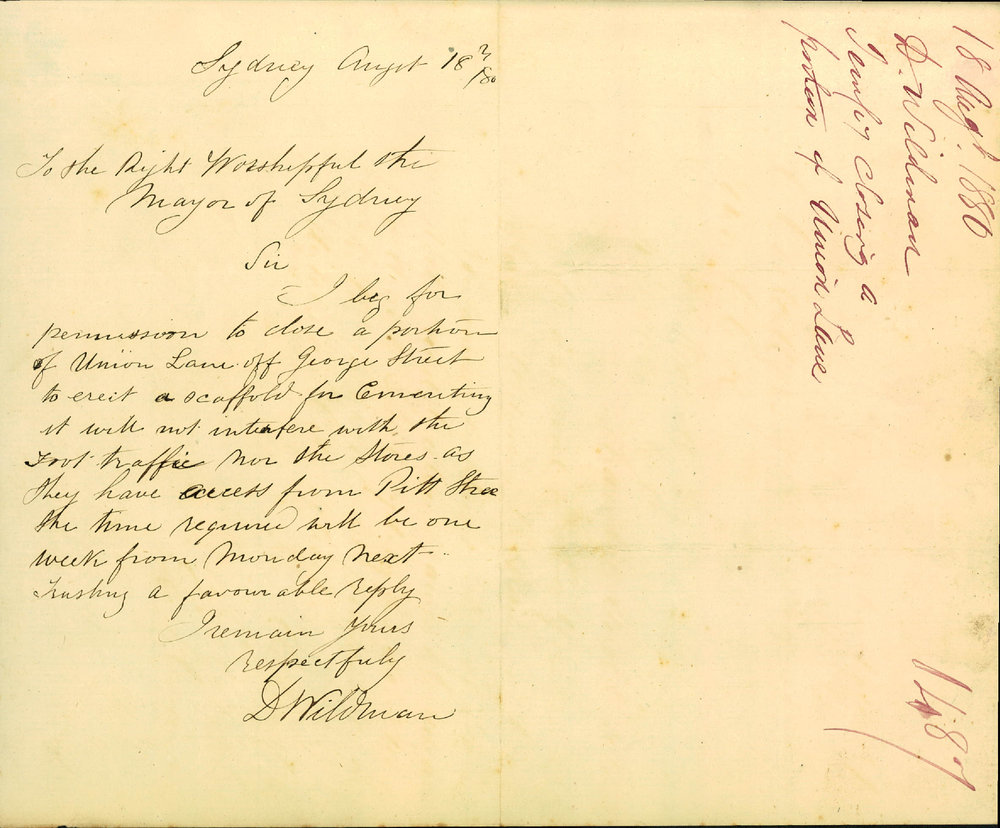 Sydney Augst 18th/80
To the Right Worshipful the
Mayor of Sydney
Sir
I beg for
permission to close a portion
of Union Lane off George Street
to erect a scaffold for Cementing
it will not interfere with the
Foot traffic nor the Stores as
they have access from Pitt Stree
the time required will be one
week from Monday next
Trusting a favourable reply
I remain Yours
respectfuly
D Wildman
18 Augt. 1880
D. Wildman
Tempy Closing a
portion of Union Lane